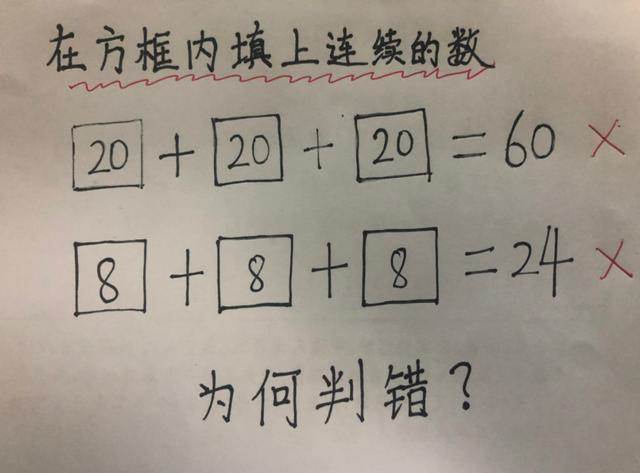 在方框内填上连续的数
20 + 20 + 20 = 60 ×
8 + 8 + 8 = 24 ×
为何判错?